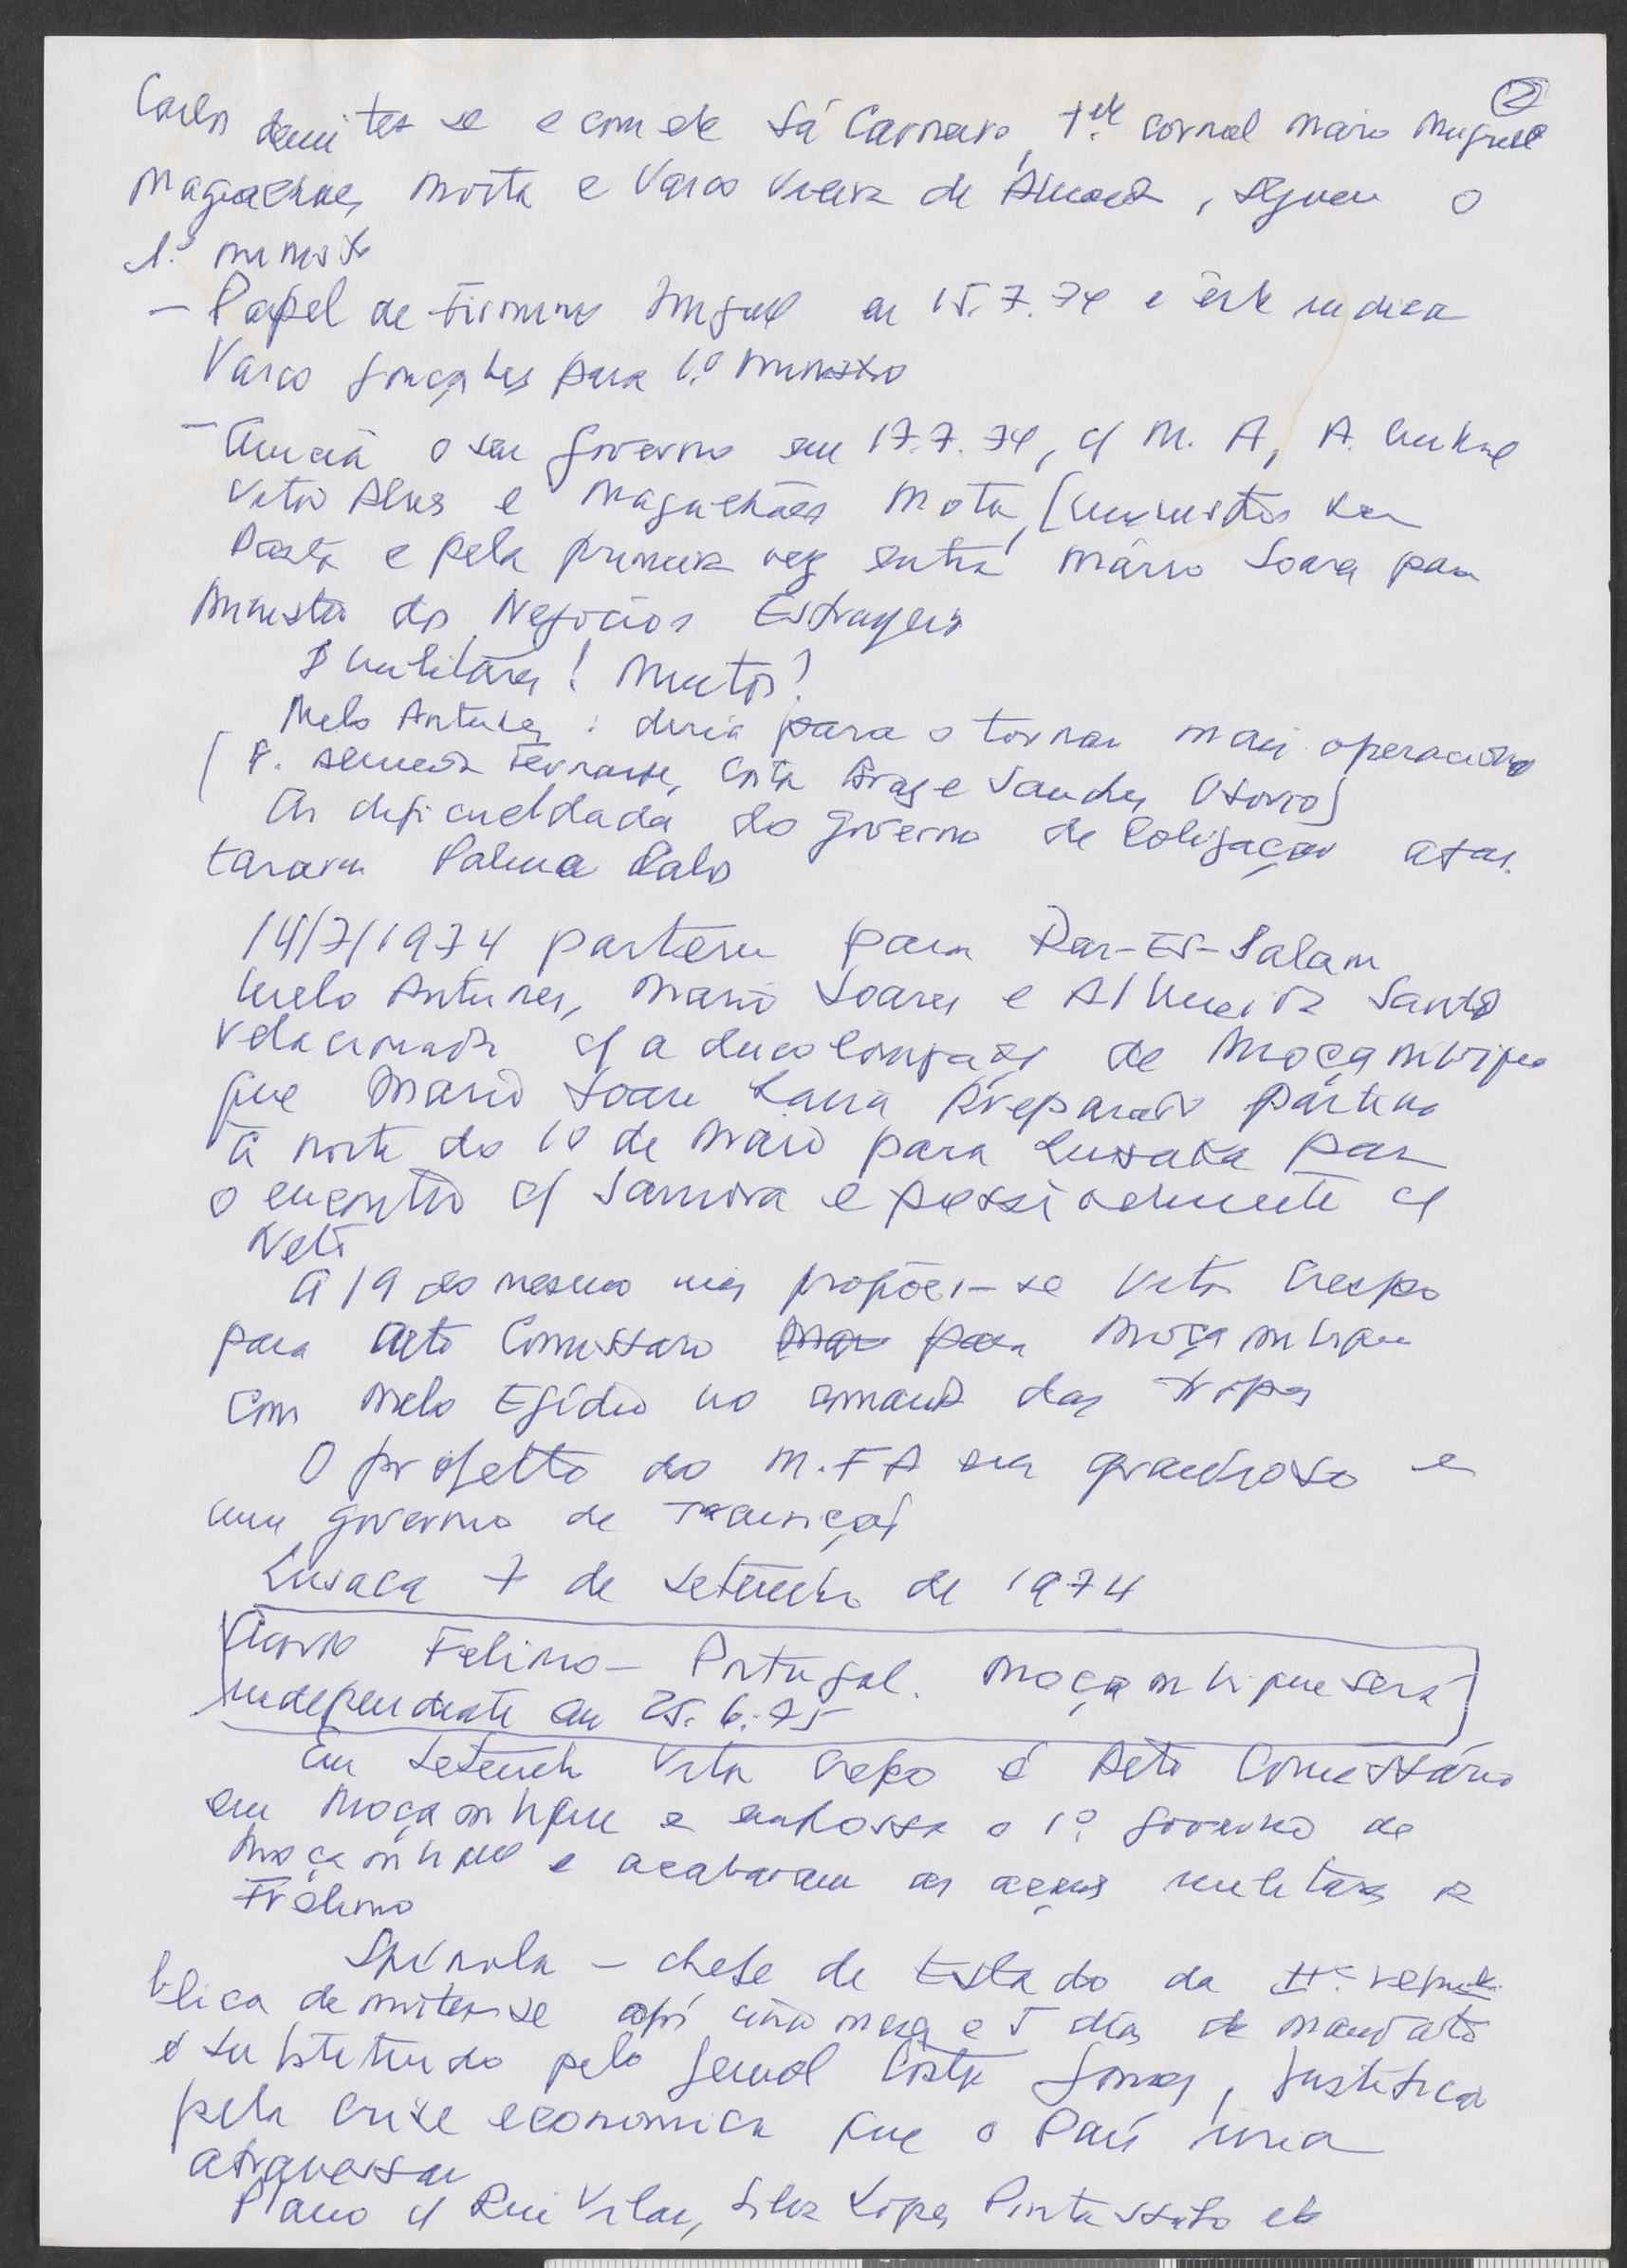 2
Carlos demite se e com ele Sá Carneiro, tte. coronel Mário Miguel
Magalhães Mota e Vasco Vieira de Almeida, seguem o
1.º ministro
- Papel de Firmino Miguel em 15.7.74 e este indica
Vasco Gonçalves para 1.º Ministro
- Anuncia o seu governo em 17.7.74, c/ M. A, A. Cunhal
Vitor Alves e Magalhães Mota, (ministros sem
Pasta e pela primeira vez entra Mário Soares para
Ministro dos Negócios Estrangeiros
8 militares! Muitos?
Melo Antunes: diria para o tornar mais operacional
( F. Almeida Fernandes, Costa Braz e Sanches Osório)
As dificuldades do governo de Coligação afas-
taram Palma Carlos
14/7/1974 partem para Dar-Es-Salam
Melo Antunes, Mario Soares e Almeida Santos
relacionada c/ a descolonização de Moçambique
que Mario Soares havia preparado partindo
à noite do 10 de Maio para Lusaka para
o encontro c/ Samora e possivelmente c/
Neto
A 19 do mesmo mês propões-se Vitor Crespo
para Alto Comissario para Moçambique
com Melo Egídio no comando das tropas
O projetto do M.F A era grandioso e
um governo de Transição
Lusaca 7 de Setembro de 1974
Acordo Felimo - Portugal. Moçambique será
independente em 25.6.75
Em Setembro Vitor Crespo é Alto Comissário
em Moçambique e empossa o 1.º governo de
Moçambique e acabaram as acções militares da
Frelimo
Spínola - chefe de Estado da IIª repu-
blica demiter-se após cinco meses e 5 dias de mandato
é substituido pelo General Costa Gomes, justifica
pela crise economica que o País iria
atravessar
Plano c/ Rui Vilar, Silva Lopes Pintassilgo etc